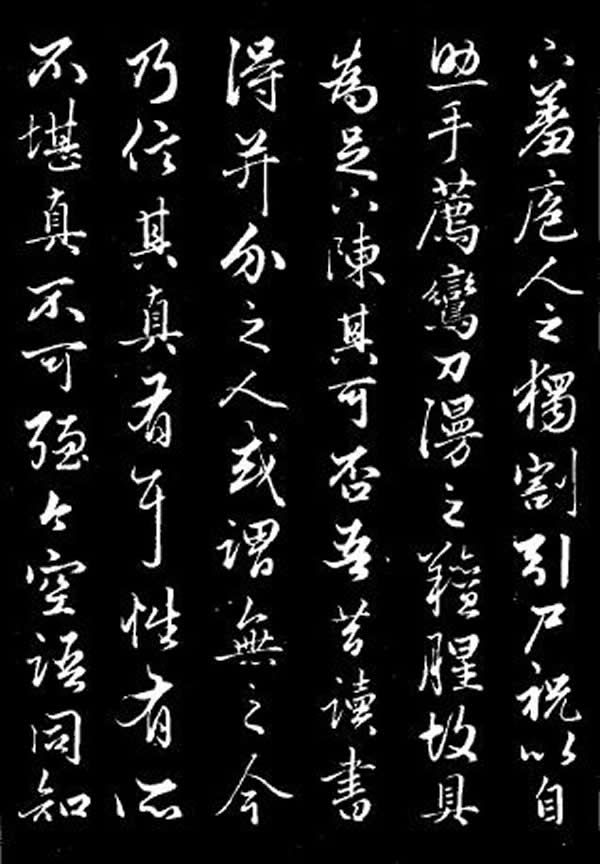 下羞庖人之獨割引尸祝以自
助手薦鸞刀漫之羶腥故具
為足下陳其可否吾昔讀書
得并介之人或謂無之今
乃信其真有耳性有所
不堪真不可強今空語同知